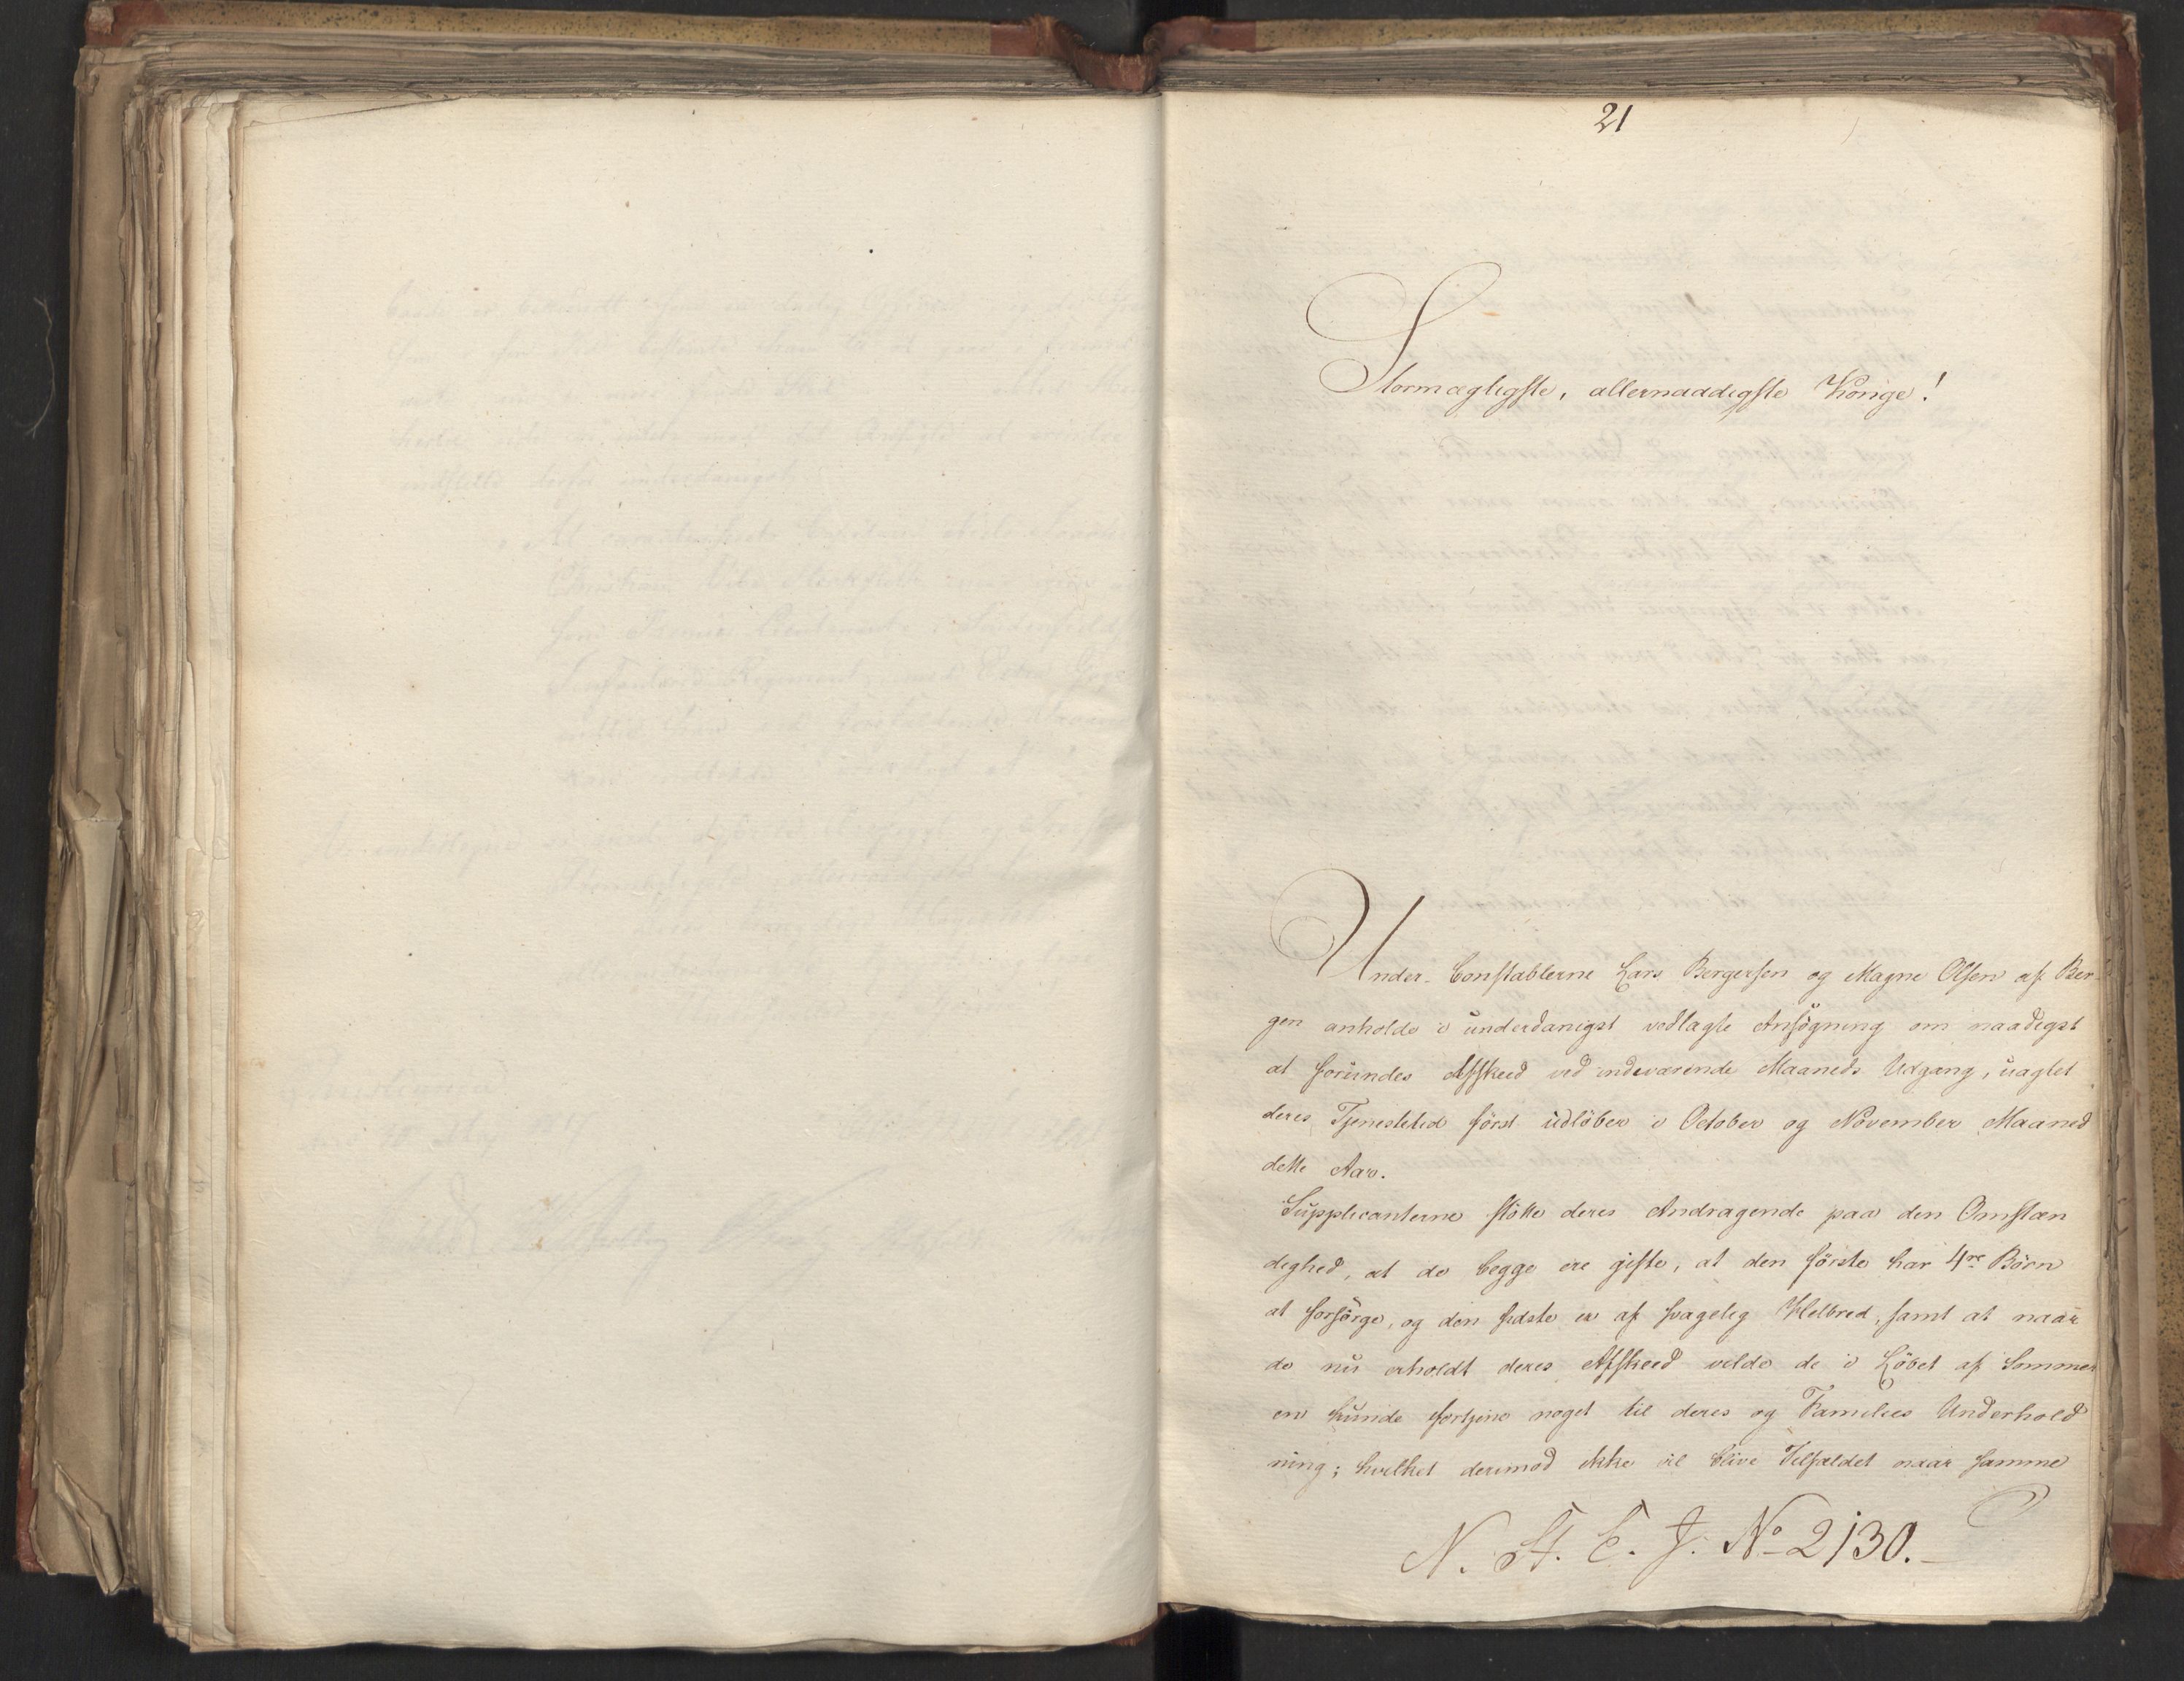 21
Stormægtigste, allernaadigste Konge!
Under-Constablerne Lars Bergersen og Magne Olsen af Ber-
gen anholde i underdanigst vedlagte Ansögning om naadigst
at forundes Afskeed ved indeværende Maaneds Udgang, uagtet
deres Tjenestetid först udlöber i October og November Maaned
dette Aar.
Supplicanterne stötte deres Andragende paa den Omstæn
dighed, at de begge ere gifte, at den förste har 4re Börn
at forsörge, og den sidste er af svagelig Helbred, samt at naar
de nu erholdt deres Afskeed vilde de i Löbet af Sommer
en kunde fortjene noget til deres og Families Underhold
ning; hvilket derimod ikke vil blive Tilfældet naar samme
N. St. C. J. No 2130.